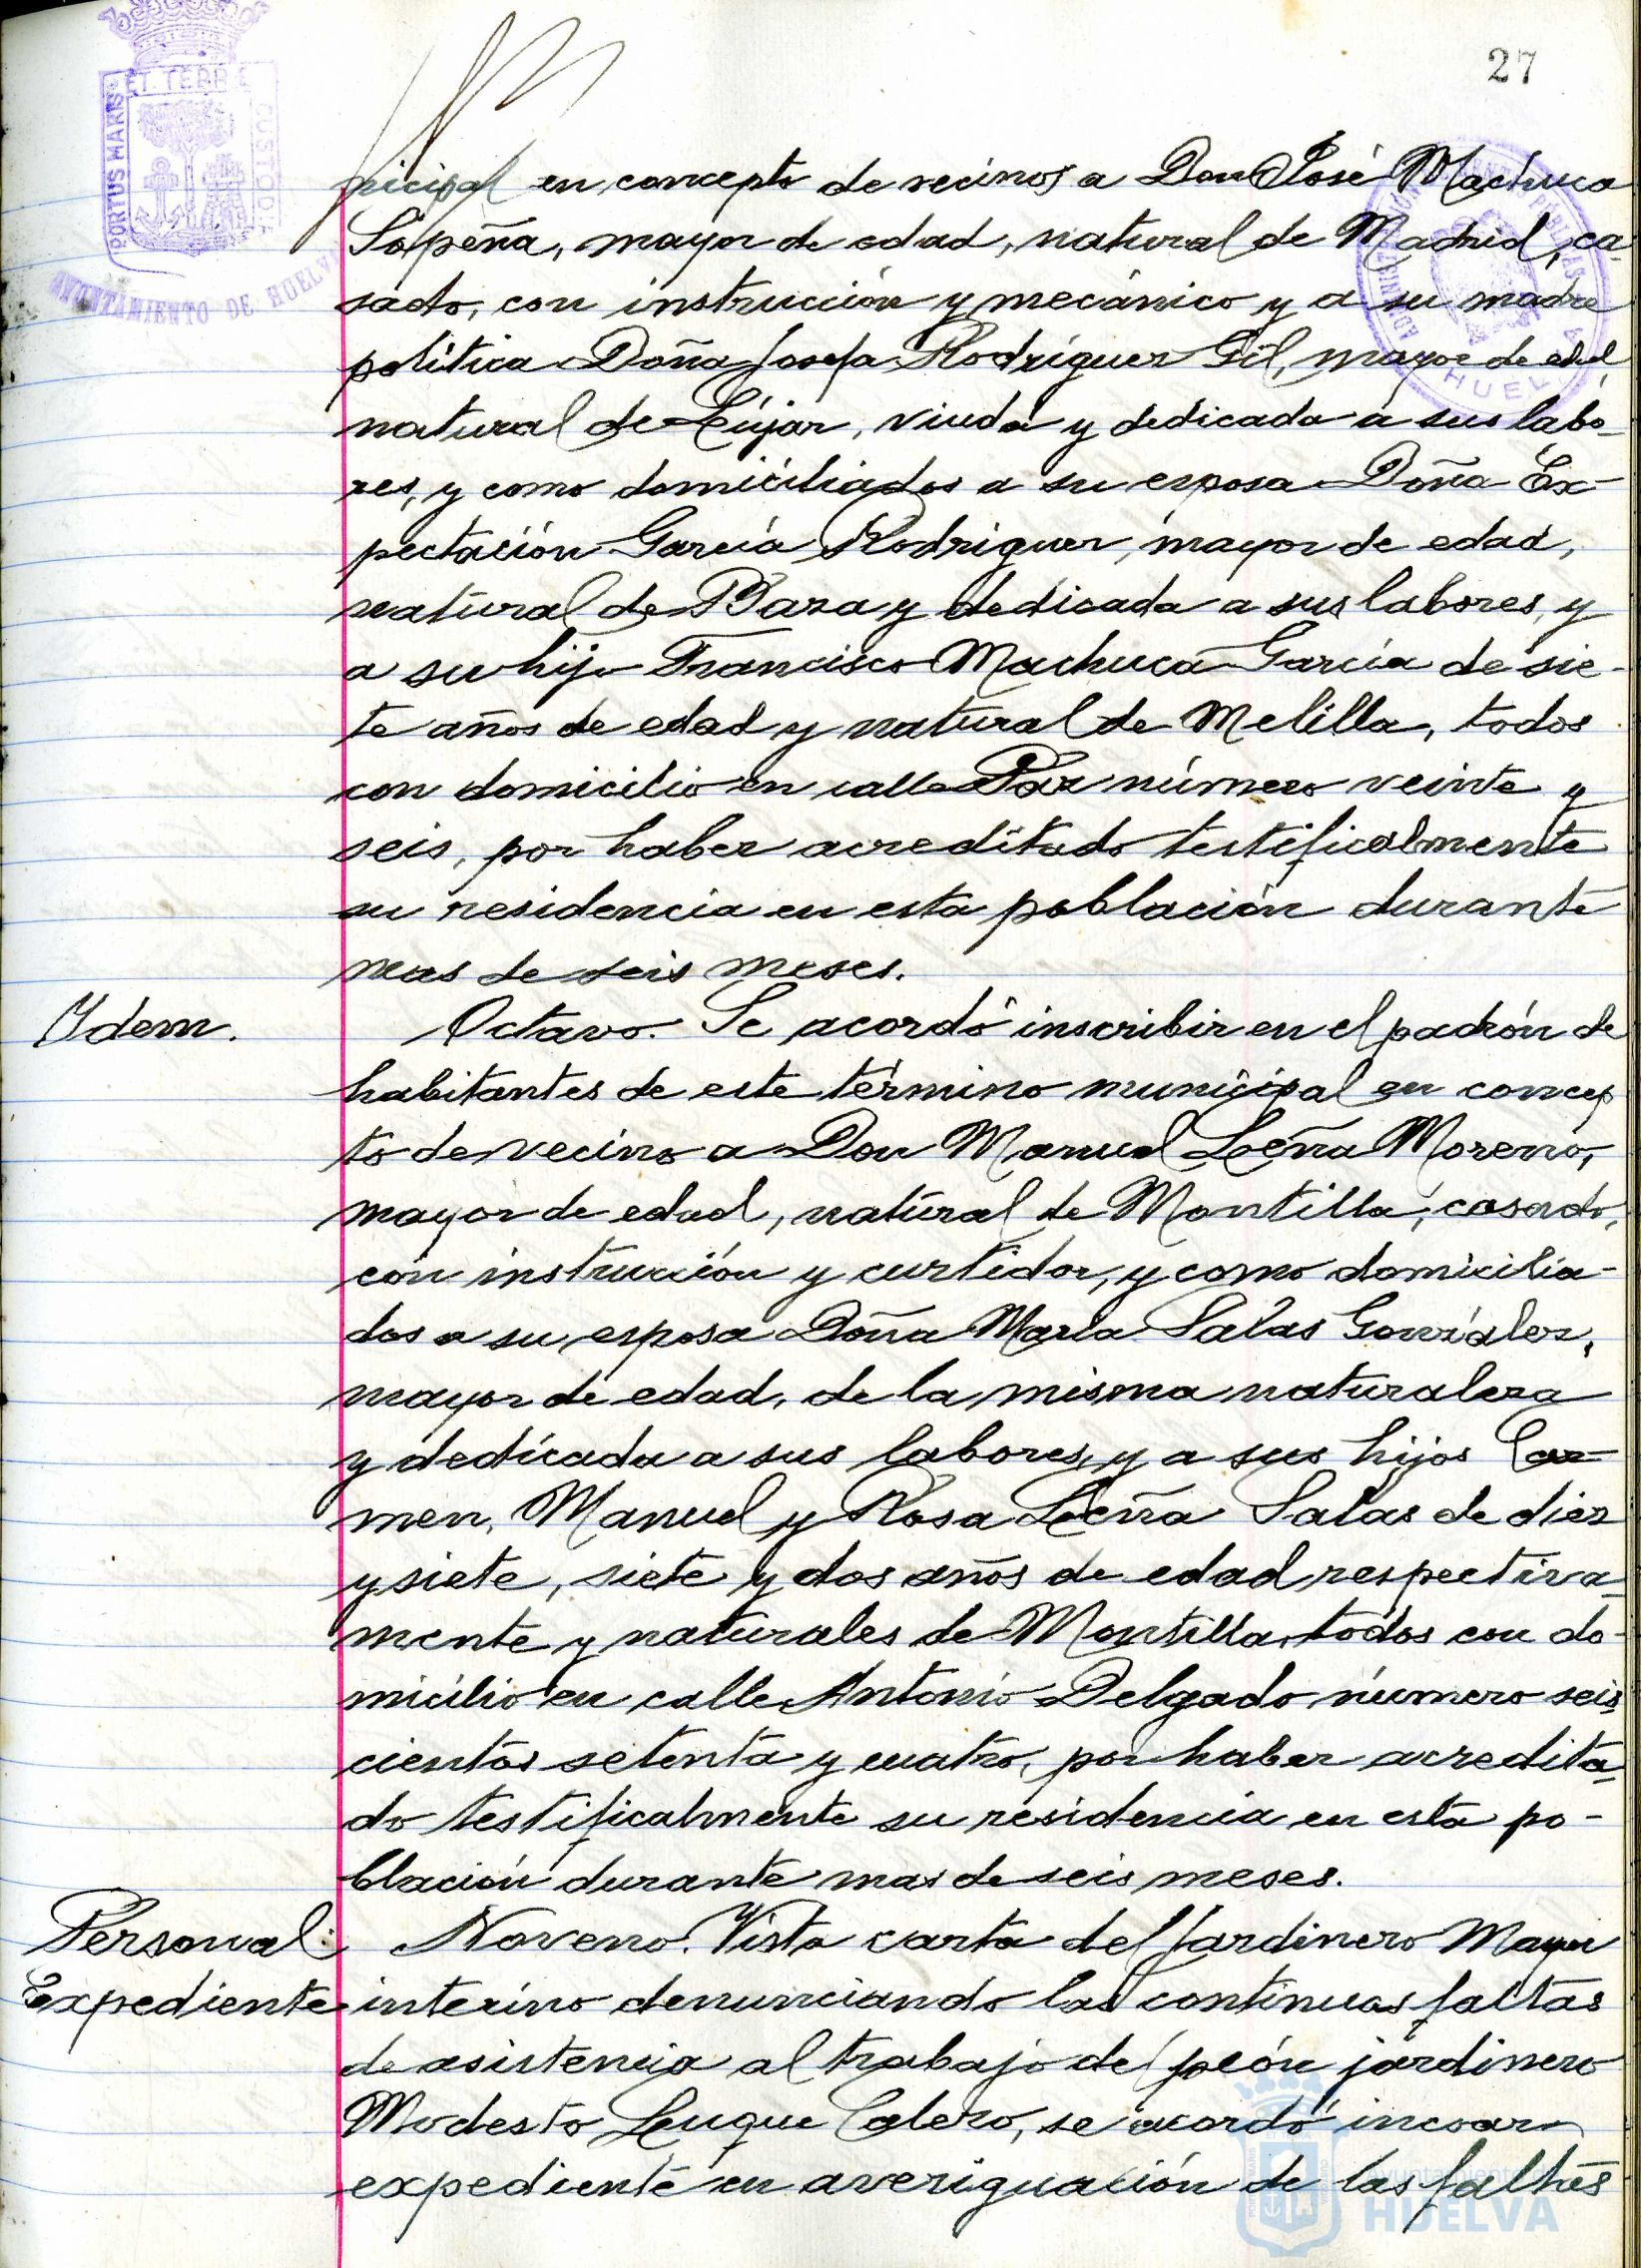 27
PORTUS MARIS ET TERRE CUSTODIA
AYUNTAMIENTO DE HUELVA
nicipal en concepto de vecinos a Don José Machuca
Sopeña, mayor de edad, natural de Madrid, ca-
sado, con instrucción y mecánico y a su madre
política Doña Josefa Rodríguez Gil, mayor de edad,
natural de Lújar, viuda y dedicada a sus labo-
res, y como domiciliados a su esposa Doña Ex-
pectación García Rodríguez, mayor de edad,
natural de Baza y dedicada a sus labores, y
a su hijo Francisco Machuca García de sie-
te años de edad y natural de Melilla, todos
con domicilio en calle Paz número veinte y
seis, por haber acreditado testificalmente
su residencia en esta población durante
mas de seis meses.
Ydem.
Octavo. Se acordó inscribir en el padrón de
habitantes de este término municipal en concep
to de vecino a Don Manuel Leña Moreno,
mayor de edad, natural de Montilla, casado,
con instrucción y curtidor, y como domicilia-
dos a su esposa Doña María Salas González,
mayor de edad, de la misma naturaleza
y dedicada a sus labores, y a sus hijos Car-
men, Manuel y Rosa Leña Salas de diez
y siete, siete y dos años de edad respectiva-
mente y naturales de Montilla, todos con do-
micilio en calle Antonio Delgado número seis-
cientos setenta y cuatro, por haber acredita-
do testificalmente su residencia en esta po-
blación durante mas de seis meses.
Personal:
Expediente
Noveno. Vista carta del Jardinero Mayor
interino denunciando las continuas faltas
de asistencia al trabajo del peón jardinero
Modesto Luque Calero, se acordó incoar
expediente en averiguación de las faltas
Ayuntamiento de
HUELVA